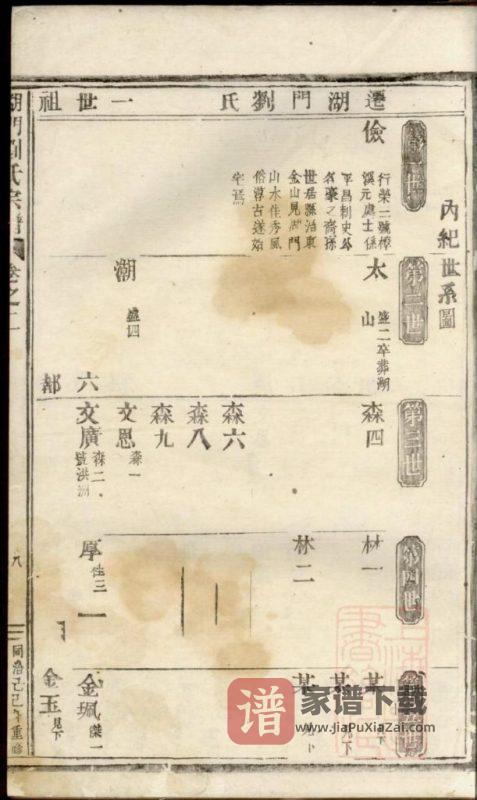 內紀世系圖
遷湖門劉氏一世祖
儉
行榮二號樟
溪元處士係
平昌刺史公
名豪之裔孫
世居縣治東
金山見湖門
山水佳秀風
俗淳古遂始
宅焉
第二世
太
盛二卒葬湖
山
潮
盛四
六
都
第三世
森四
森六
森八
森九
文恩
森一
文廣
森二
號洪洲
第四世
林一
林二
厚
桂三
某
某
金珮
傑一
金玉
見下
湖門劉氏宗譜
卷之二
八
同治己巳年重修
谱
家谱下载
www.JiaPuXiaZai.com